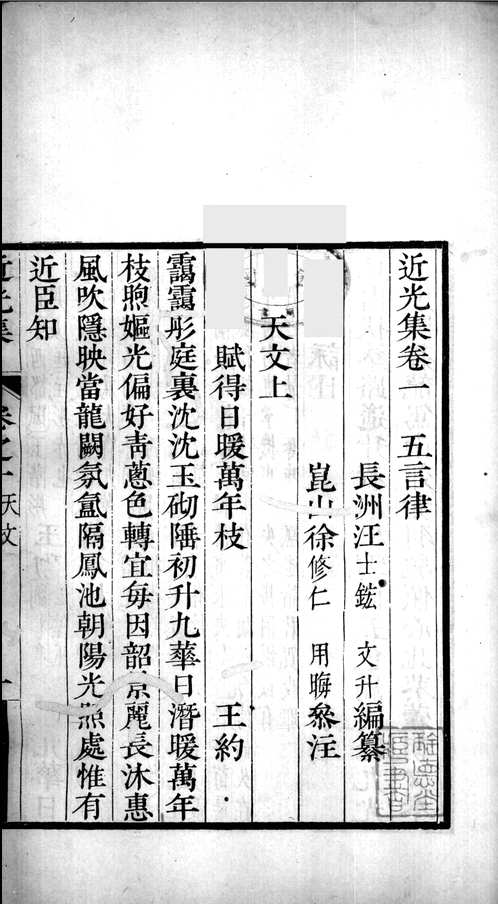 近光集卷一　五言律
長洲汪士鋐　文升編纂
崑山徐修仁　用晦叅注
天文上
賦得日暖萬年枝　王約
靄靄彤庭裏沈沈玉砌陲初升九華日潛暖萬年
枝煦嫗光偏好青蔥色轉宜每因韶景麗長沐惠
風吹隱映當龍闕氛氳隔鳳池朝陽光照處惟有
近臣知
近光集　卷之一天文　一